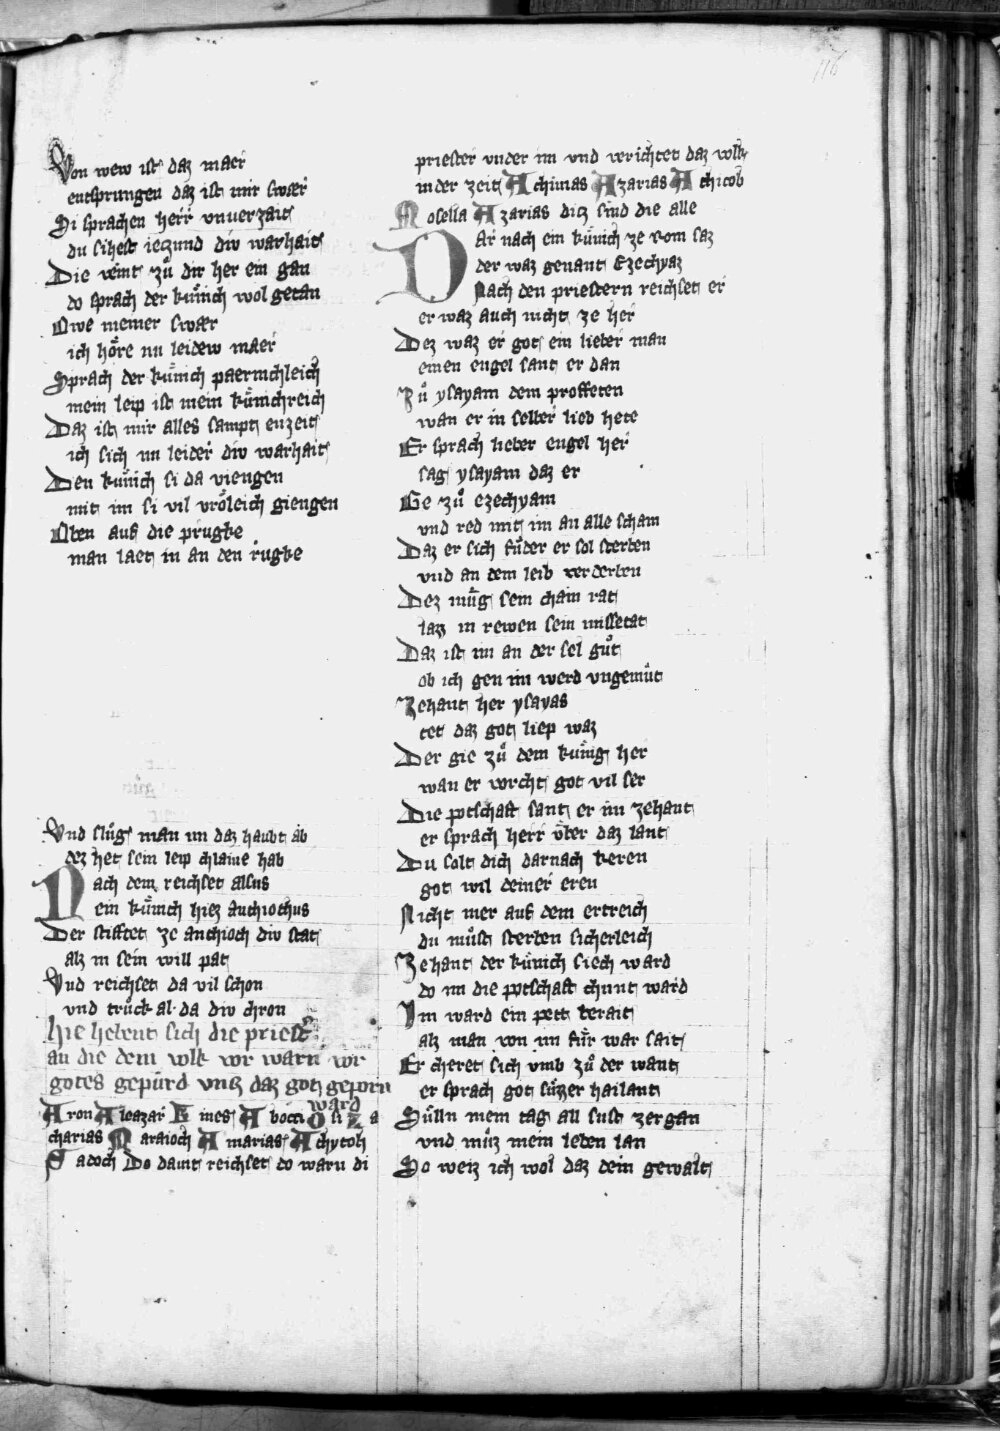 116
Von wew ist daz maer
entsprungen daz ist mir swaer
Si sprachen herr vnuerzait
du sihest ieczund div warhait
Die veint zuͦ dir her ein gan
do sprach der kuͤnich wol getan
Owe meiner swaer
ich hoͤre nu leidew maer
Sprach der kuͤnich paermchleich
mein leip ist mein kuͤnichreich
Daz ist mir alles sampt enzeit
ich sich nu leider div warhait
Den kuͤnich si da viengen
mit im si vil vroͤleich giengen
Oben auf die prugke
man laet in an den rugke
Vnd sluͦg man im daz haubt ab
dez het sein leip chlaine hab
Nach dem reichset alsus
ein kuͤnich hiez Anthiochus
Der stifftet ze anthioch div stat
alz in sein will pat
Vnd reichset da vil schon
vnd truͦck al da div chron
hie hebent sich die priest
an die dem volk vor warn vor
gotes gepurd vntz daz got geporn
ward
Aron Aleazar Eines Abocci Ou Za
charias Maraioch Amarias Achytob
Sadoch Do damit reichset do warn di
priester vnder im vnd verichtet daz volk
in der zeit Achimas Azarias Achitob
Mosella Azarias dicz sind die alle
Dar nach ein kuͤnich ze rom saz
der waz genant Ezechyaz
Nach den priestern reichset er
er waz auch nicht ze her
Dez waz er got ein lieber man
einen engel sant er dan
Zuͦ ysayam dem proffeten
wan er in selber lieb hete
Er sprach lieber engel her
sag ysayam daz er
Ge zuͦ ezechyam
vnd red mit im an alle scham
Daz er sich fuͤder er sol sterben
vnd an dem leib verderben
Dez muͤg sein chain rat
lazz in rewen sein missetat
Daz ist im an der sel guͦt
ob ich gen im werd vngemuͦt
Zehant her ysayas
tet daz got liep waz
Der gie zuͦ dem kuͤnig her
wan er vorcht got vil ser
Die potschaft sant er im zehant
er sprach herr vͤber daz lant
Du solt dich darnach keren
got wil deiner eren
Nicht mer auf dem ertreich
du muͦst sterben sicherleich
Zehant der kuͤnich siech ward
do im die potschaft chunt ward
Im ward ein pett berait
alz man von im fuͤr war sait
Er cheret sich vmb zuͦ der want
er sprach got suͤzzer hailant
Suͤlln mein tag all sust zergan
vnd muͦz mein leben lan
So weiz ich wol daz dein gewalt